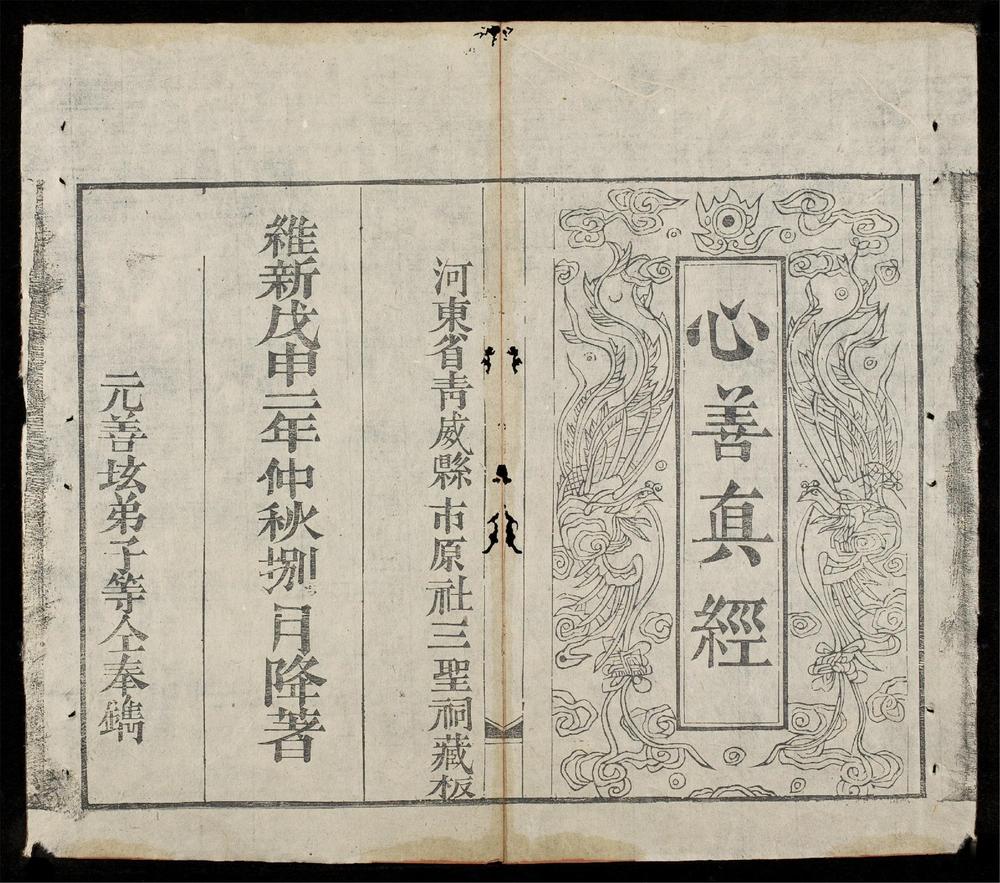 心善真經
河東省青威縣市原社三聖祠藏板
維新戊申二年仲秋捌月降著
元善坛弟子等仝奉鐫